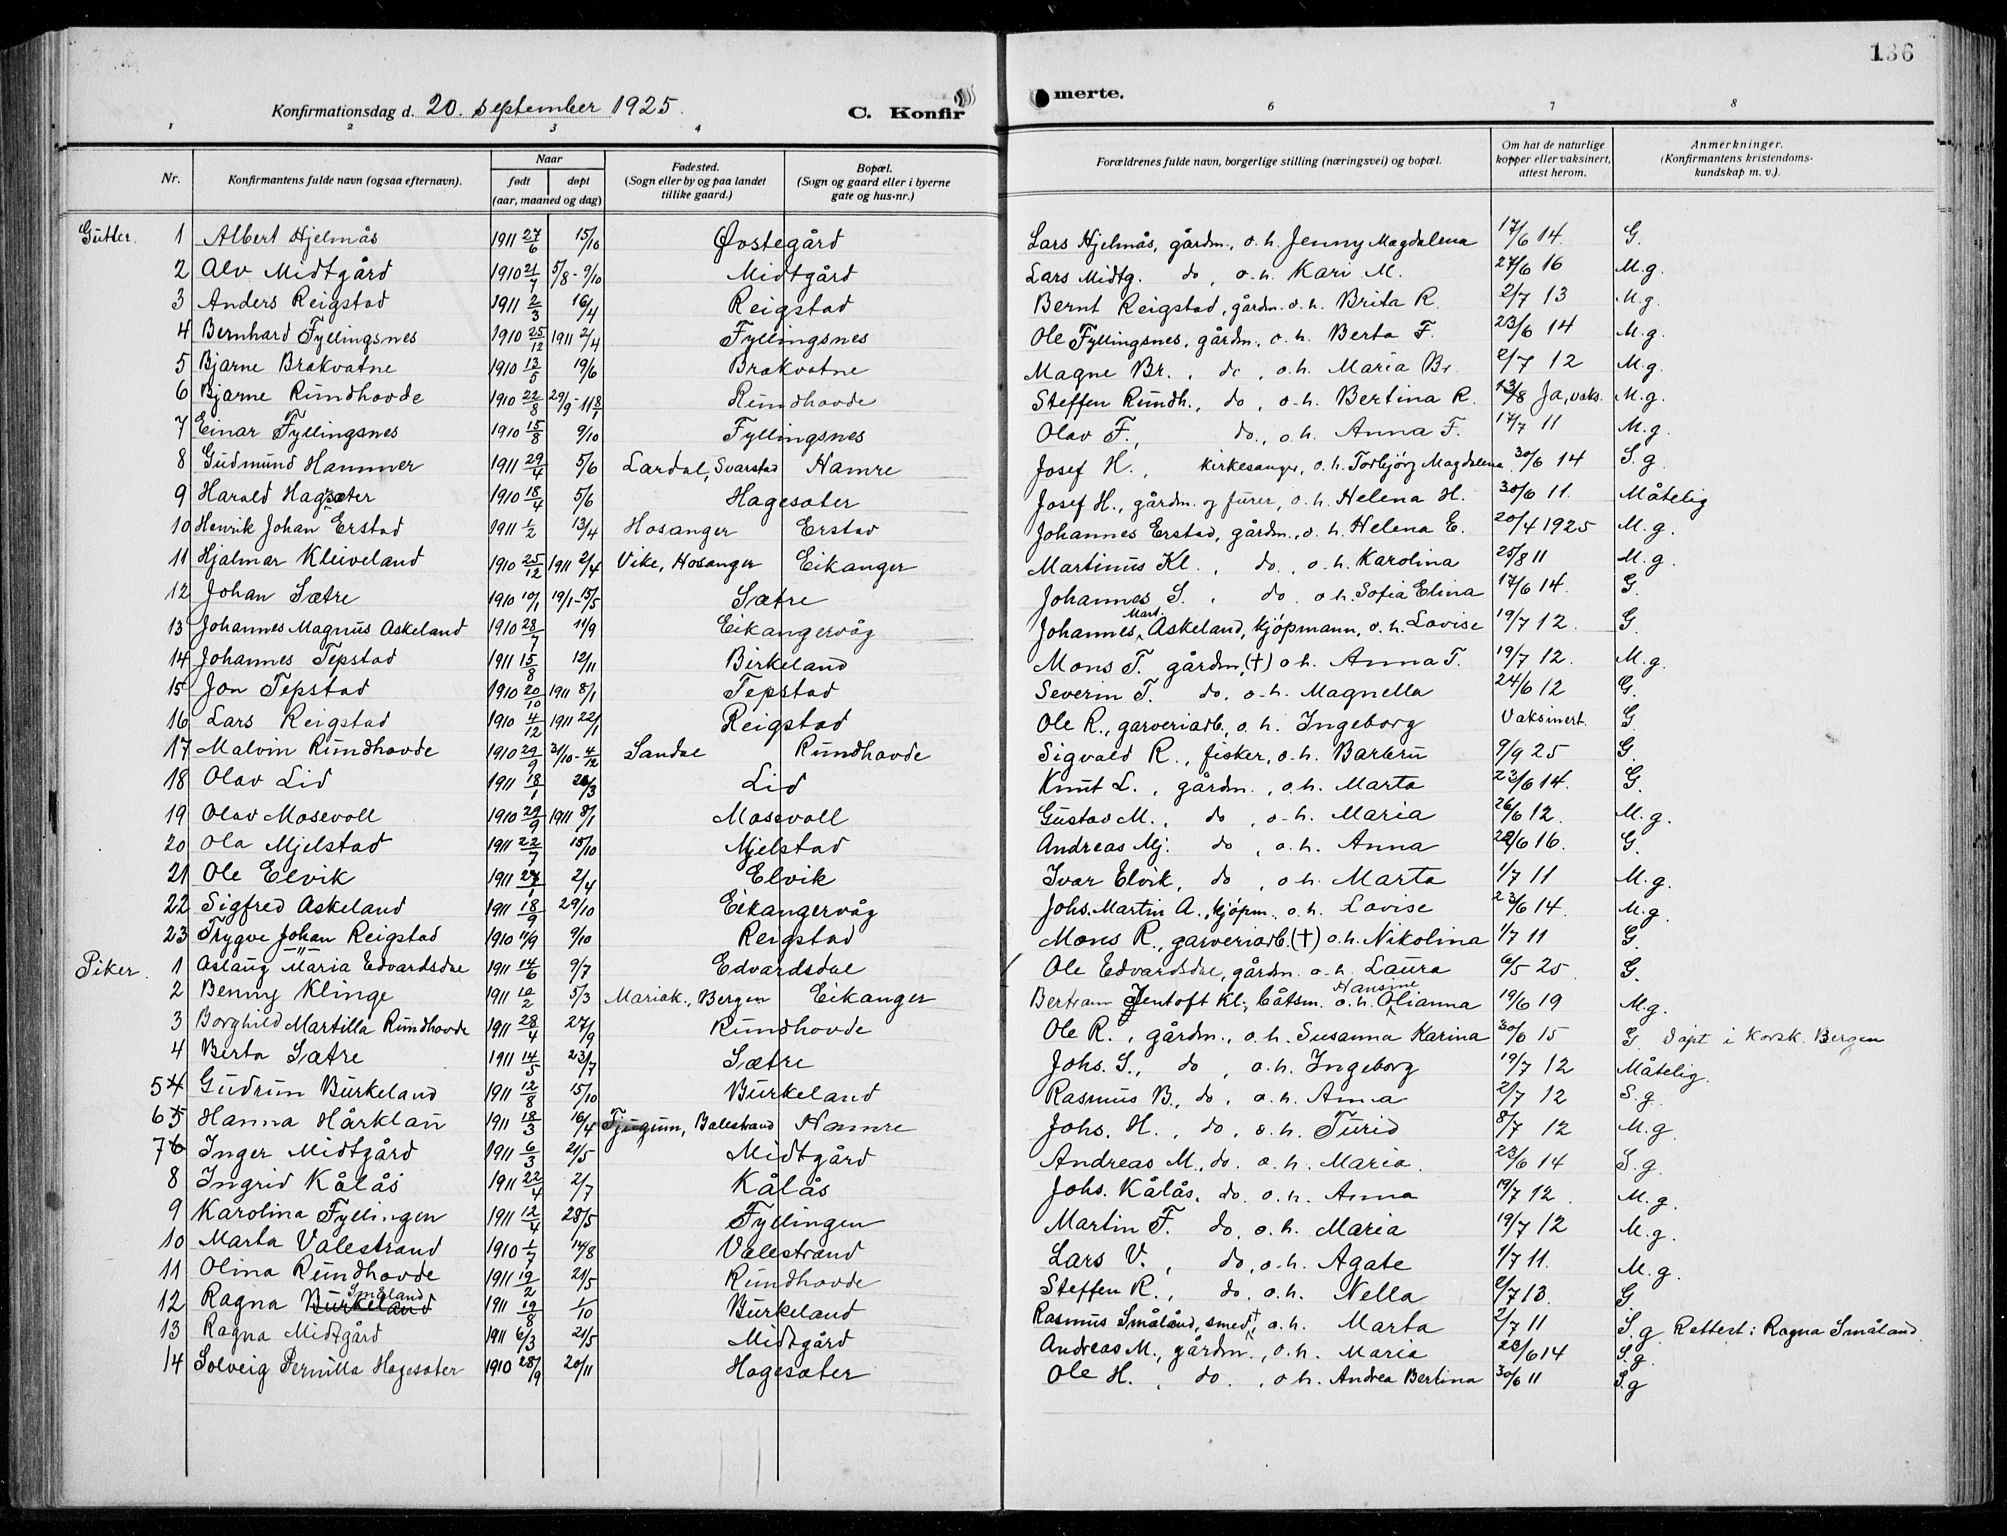 136
Konfirmationsdag d. 20. september 1925.
C. Konfir merte.
1 2 3 4 6 7 8
Nr. Konfirmantens fulde navn (ogsaa efternavn). Naar født døpt (aar, maaned og dag) Fødested. (Sogn eller by og paa landet tillike gaard.) Bopæl. (Sogn og gaard eller i byerne gate og hus-nr.) Forældrenes fulde navn, borgerlige stilling (næringsvei) og bopæl. Om hat de naturlige kopper eller vaksinert, attest herom. Anmerkninger. (Konfirmantens kristendoms-kundskap m. v.).
Gutter. 1 Albert Hjelmås 1911 27/6 15/10 Øostegård Lars Hjelmås, gårdm., o.h. Jenny Magdalena 17/6 14. G.
2 Alv Midtgård 1910 21/7 5/8 - 9/10 Midtgård Lars Midtg. do, o.h. Kari M. 27/6 16 M.g.
3 Anders Reigstad 1911 2/3 16/4 Reigstad Bernt Reigstad, gårdm. o.h. Brita R. 2/7 13 M.g.
4 Bernhard Fyllingsnes 1910 25/12 1911 2/4 Fyllingsnes Ole Fyllingsnes, gårdm., o.h. Berta F. 23/6 14 M.g.
5 Bjarne Brakvatne 1910 13/5 19/6 Brakvatne Magne Br., do, o.h. Maria Br. 2/7 12 M.g.
6 Bjarne Rundhovde 1910 22/8 29/9 - 11 8/1 Rundhovde Steffen Rundh., do, o.h. Bertina R. 13/8 Ja, vaks. M.g.
7 Einar Fyllingsnes 1910 15/8 9/10 Fyllingsnes Olav F., do., o.h. Anna F. 17/7 11 M.g.
8 Gudmund Hammer 1911 29/4 5/6 Lardal, Svarstad Hamre Josef H., kirkesanger, o.h. Torbjørg Magdalena 30/6 14 S.g.
9 Harald Hagesæter 1910 18/4 5/6 Hagesæter Josef H., gårdm. og furer, o.h. Helena H. 30/6 11. Måtelig
10 Henrik Johan Erstad 1911 1/2 13/4 Hosanger Erstad Johannes Erstad, gårdm., o.h. Helena E. 20/4 1925 M.g.
11 Hjalmar Kleiveland 1910 25/12 1911 2/4 Vike, Hosanger Eikanger Martinus Kl., do, o.h. Karolina 25/8 11 M.g.
12 Johan Sætre 1910 10/1 19/1 - 15/5 Sætre Johannes S., do. o.h. Sofia Elina 17/6 14. G.
13 Johannes Magnus Askeland 1910 28/7 11/9 Eikangervåg Johannes Mart. Askeland, kjøpmann, o.h. Lovise 19/7 12. G.
14 Johannes Tepstad 1911 15/8 12/11 Birkeland Mons T. gårdm, (†) o.h. Anna T. 19/7 12. M.g.
15 Jon Tepstad 1910 20/10 1911 8/1 Tepstad Severin T. do, o.h. Magnella 24/6 12 G.
16 Lars Reigstad 1910 4/12 1911 22/1 Reigstad Ole R., garveriarb., o.h. Ingeborg Vaksinert. G
17 Malvin Rundhovde 1910 29/9 31/10 - 4/12 Sandal Rundhovde Sigvald R., fisker, o.h. Barbru 9/9 25 G.
18 Olav Lid 1911 18/1 26/3 Lid Knut L., gårdm., o.h. Marta 23/6 14. G.
19 Olav Mosevoll 1910 29/9 1911 8/1 Mosevoll Gustav M., do, o.h. Maria 26/6 12. M.g.
20 Ola Mjelstad 1911 22/7 15/10 Mjelstad Andreas Mj. do, o.h. Anna 28/6 16. G.
21 Ole Elvik 1911 27/1 2/4 Elvik Ivar Elvik, do, o.h. Marta 1/7 11 M.g.
22 Sigfred Askeland 1911 18/9 29/10 Eikangervåg Johs. Martin A., kjøpm., o.h. Lovise 23/6 14. M.g.
23 Trygve Johan Reigstad 1910 11/9 9/10 Reigstad Mons R., garveriarb. (†) o.h. Nikolina 1/7 11 G.
Piker. 1 Aslaug Maria Edvardsdal 1911 14/6 9/7 Edvardsdal Ole Edvardsdal, gårdm. o.h. Laura 6/5 25. G.
2 Benny Klinge 1911 10/2 5/3 Mariak., Bergen Eikanger Bertram Jentoft Kl., båtsm. o.h. Hansine Olianna 19/6 19 M.g.
3 Borghild Martilla Rundhovde 1911 28/4 27/9 Rundhovde Ole R., gårdm., o.h. Susanna Karina 30/6 15 G. Døpt i Korsk. Bergen
4 Berta Sætre 1911 14/5 23/7 Sætre Johs. S., do, o.h. Ingeborg 19/7 12 Måtelig.
5 4 Gudrun Burkeland 1911 12/8 15/10 Burkeland Rasmus B., do, o.h. Anna 2/7 12 S.g.
6 5 Hanna Hårklau 1911 18/3 16/4 Tjugum, Balestrand Hamre Johs. H., do, o.h. Turid 8/7 12 M.g.
7 6 Inger Midtgård 1911 6/3 21/5 Midtgård Andreas M., do. o.h. Maria. 23/6 14 S.g.
8 Ingrid Kålås 1911 22/4 2/7 Kålås Johs. Kålås, do. o.h. Anna 19/7 12. M.g.
9 Karolina Fyllingen 1911 12/4 28/5 Fyllingen Martin F. do, o.h. Maria 19/7 12 M.g.
10 Marta Valestrand 1910 1/7 14/8 Valestrand Lars V., do, o.h. Agate 1/7 11. M.g.
11 Olina Rundhovde 1911 19/2 21/5 Rundhovde Steffen R., do. o.h. Nella 2/7 13. G
12 Ragna Burkeland Småland 1911 19/8 1/10 Burkeland Rasmus Småland, smed †, o.h. Marta 2/7 11 S.g. Rettert: Ragna Småland.
13 Ragna Midtgård 1911 6/3 21/5 Midtgård Andreas M., gårdm., o.h. Maria 23/6 14 S.g.
14 Solveig Pernilla Hagesæter 1910 28/9 20/11 Hagesæter Ole H., do., o.h. Andrea Bertina 30/6 11 S.g